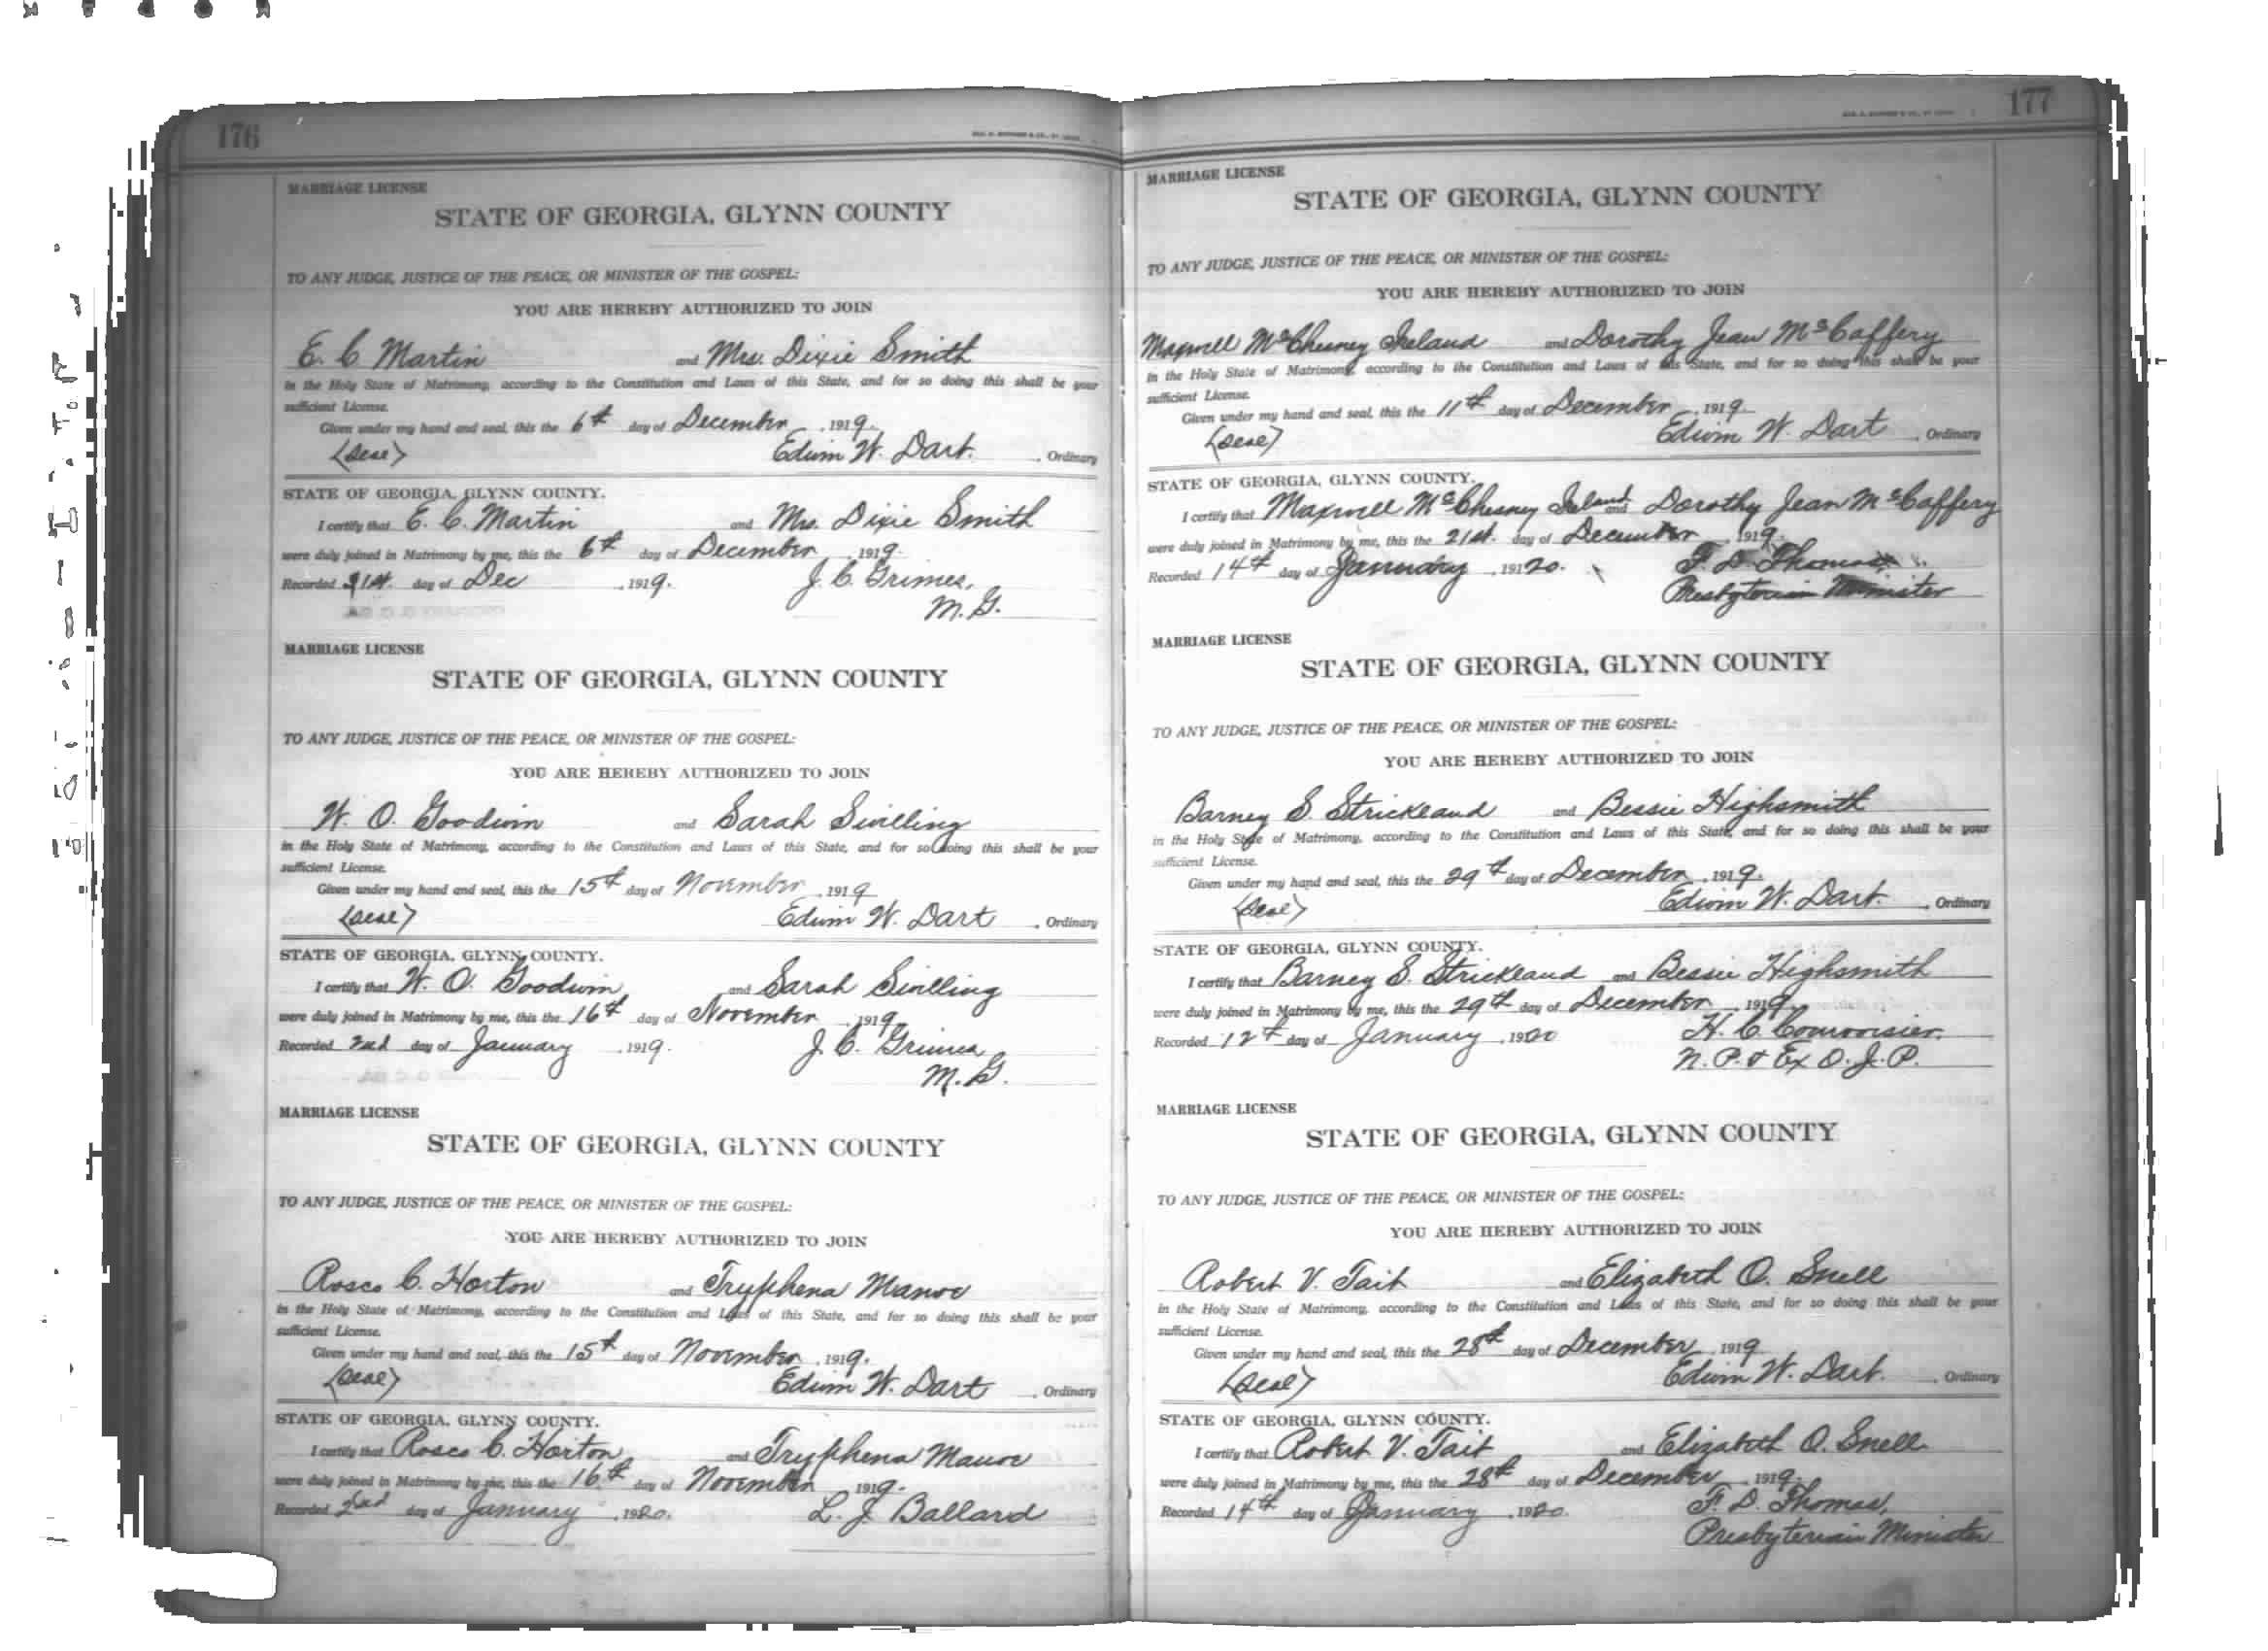 176
MARRIAGE LICENSE
STATE OF GEORGIA, GLYNN COUNTY
TO ANY JUDGE, JUSTICE OF THE PEACE, OR MINISTER OF THE GOSPEL:
YOU ARE HEREBY AUTHORIZED TO JOIN
E. C. Martin and Mrs. Dixie Smith
in the Holy State of Matrimony, according to the Constitution and Laws of this State, and for so doing this shall be your
sufficient License.
Given under my hand and seal, this the 6th day of December, 1919.
(Seal) Edwin W. Dart. , Ordinary
STATE OF GEORGIA, GLYNN COUNTY.
I certify that E. C. Martin and Mrs. Dixie Smith
were duly joined in Matrimony by me, this the 6th day of December, 1919.
Recorded 31st. day of Dec , 1919. J. C. Grimes,
M. G.
MARRIAGE LICENSE
STATE OF GEORGIA, GLYNN COUNTY
TO ANY JUDGE, JUSTICE OF THE PEACE, OR MINISTER OF THE GOSPEL:
YOU ARE HEREBY AUTHORIZED TO JOIN
W. O. Goodwin and Sarah Swilling
in the Holy State of Matrimony, according to the Constitution and Laws of this State, and for so doing this shall be your
sufficient License.
Given under my hand and seal, this the 15th day of November, 1919
(Seal) Edwin W. Dart , Ordinary
STATE OF GEORGIA, GLYNN COUNTY.
I certify that W. O. Goodwin and Sarah Swilling
were duly joined in Matrimony by me, this the 16th day of November, 1919.
Recorded 2nd day of January, 1919. J. C. Grimes,
M. G.
MARRIAGE LICENSE
STATE OF GEORGIA, GLYNN COUNTY
TO ANY JUDGE, JUSTICE OF THE PEACE, OR MINISTER OF THE GOSPEL:
YOU ARE HEREBY AUTHORIZED TO JOIN
Rosco C. Horton and Tryphena Manoe
in the Holy State of Matrimony, according to the Constitution and Laws of this State, and for so doing this shall be your
sufficient License.
Given under my hand and seal, this the 15th day of November, 1919.
(Seal) Edwin W. Dart , Ordinary
STATE OF GEORGIA, GLYNN COUNTY.
I certify that Rosco C. Horton and Tryphena Manoe
were duly joined in Matrimony by me, this the 16th day of November 1919.
Recorded 2nd day of January, 1920. L. J. Ballard
177
MARRIAGE LICENSE
STATE OF GEORGIA, GLYNN COUNTY
TO ANY JUDGE, JUSTICE OF THE PEACE, OR MINISTER OF THE GOSPEL:
YOU ARE HEREBY AUTHORIZED TO JOIN
Maxwell McChesney Ireland and Dorothy Jean McCaffery
in the Holy State of Matrimony, according to the Constitution and Laws of this State, and for so doing this shall be your
sufficient License.
Given under my hand and seal, this the 11th day of December, 1919.
(Seal) Edwin W. Dart , Ordinary
STATE OF GEORGIA, GLYNN COUNTY.
I certify that Maxwell McChesney Ireland and Dorothy Jean McCaffery
were duly joined in Matrimony by me, this the 21st. day of December, 1919.
Recorded 14th day of January, 19120. F. D. Thomas
Presbyterian Minister
MARRIAGE LICENSE
STATE OF GEORGIA, GLYNN COUNTY
TO ANY JUDGE, JUSTICE OF THE PEACE, OR MINISTER OF THE GOSPEL:
YOU ARE HEREBY AUTHORIZED TO JOIN
Barney S. Strickland and Bessie Highsmith
in the Holy State of Matrimony, according to the Constitution and Laws of this State, and for so doing this shall be your
sufficient License.
Given under my hand and seal, this the 29th day of December, 1919.
(Seal) Edwin W. Dart. , Ordinary
STATE OF GEORGIA, GLYNN COUNTY.
I certify that Barney S. Strickland and Bessie Highsmith
were duly joined in Matrimony by me, this the 29th day of December, 1919.
Recorded 12th day of January, 1920 H. C. Courvoisier.
N. P. & Ex O. J. P.
MARRIAGE LICENSE
STATE OF GEORGIA, GLYNN COUNTY
TO ANY JUDGE, JUSTICE OF THE PEACE, OR MINISTER OF THE GOSPEL:
YOU ARE HEREBY AUTHORIZED TO JOIN
Robert V. Tait and Elizabeth O. Snell
in the Holy State of Matrimony, according to the Constitution and Laws of this State, and for so doing this shall be your
sufficient License.
Given under my hand and seal, this the 28th day of December, 1919
(Seal) Edwin W. Dart. , Ordinary
STATE OF GEORGIA, GLYNN COUNTY.
I certify that Robert V. Tait and Elizabeth O. Snell
were duly joined in Matrimony by me, this the 28th day of December, 1919.
Recorded 14th day of January, 1920. F. D. Thomas,
Presbyterian Minister